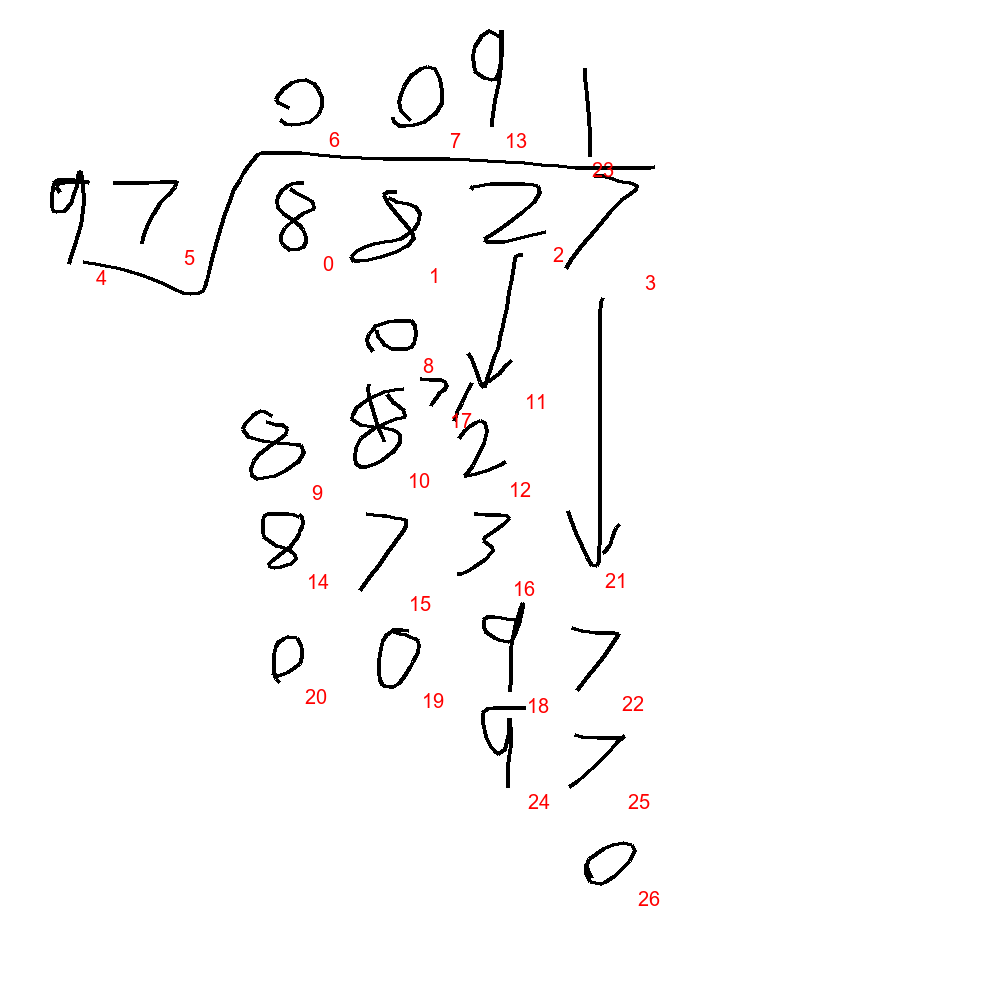 0 0 9 1
6 7 13 23
97 8827
4 5 0 1 2 3
0
8
7 1
17 11
8 8 2
9 10 12
8 7 3
14 15 16 21
0 0 9 7
20 19 18 22
9 7
24 25
0
26